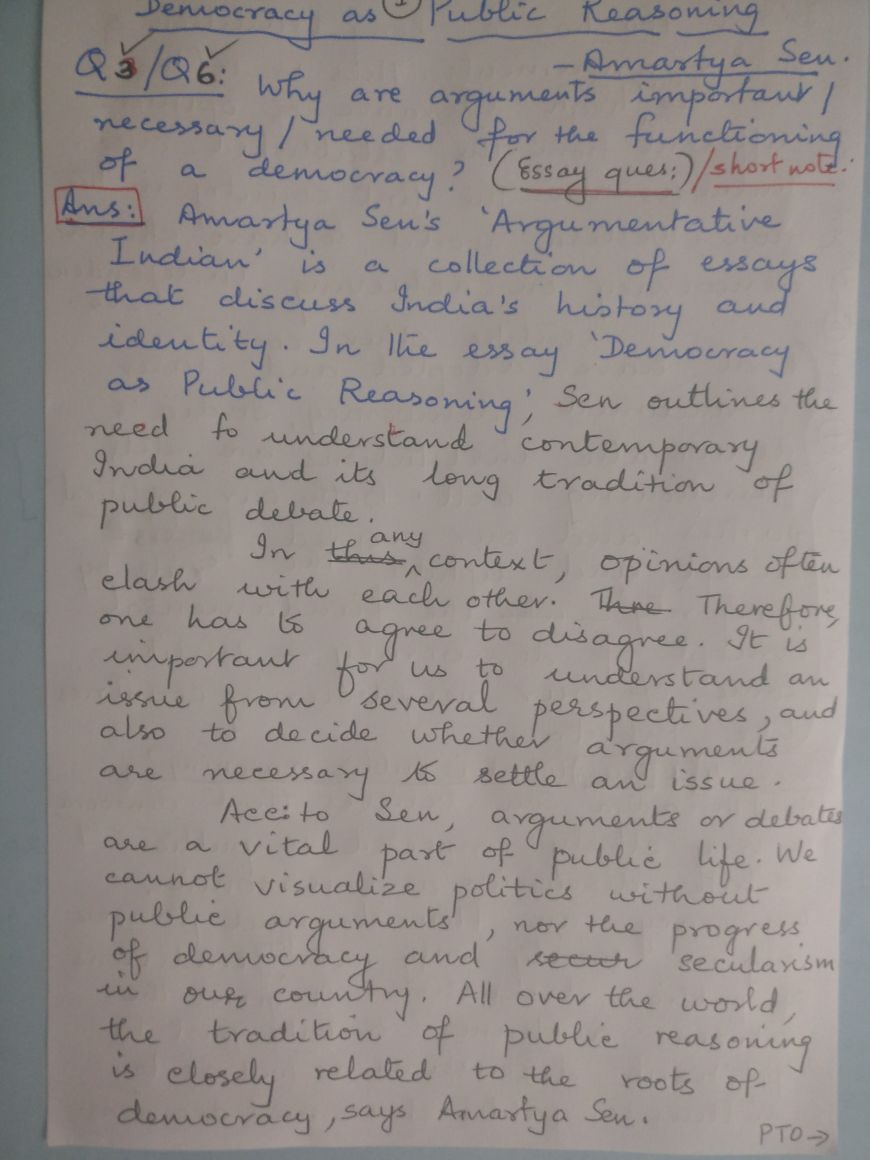 Democracy as ① Public Reasoning
- Amartya Sen.
Q3/Q6: Why are arguments important/
necessary/needed for the functioning
of a democracy? (Essay ques:)/short note.
Ans: Amartya Sen's 'Argumentative
Indian' is a collection of essays
that discuss India's history and
identity. In the essay 'Democracy
as Public Reasoning', Sen outlines the
need to understand contemporary
India and its long tradition of
public debate.
In this any context, opinions often
clash with each other. Thre Therefore,
one has to agree to disagree. It is
important for us to understand an
issue from several perspectives, and
also to decide whether arguments
are necessary to settle an issue.
Acc: to Sen, arguments or debates
are a vital part of public life. We
cannot visualize politics without
public arguments, nor the progress
of democracy and secur secularism
in our country. All over the world,
the tradition of public reasoning
is closely related to the roots of
democracy, says Amartya Sen.
PTO→